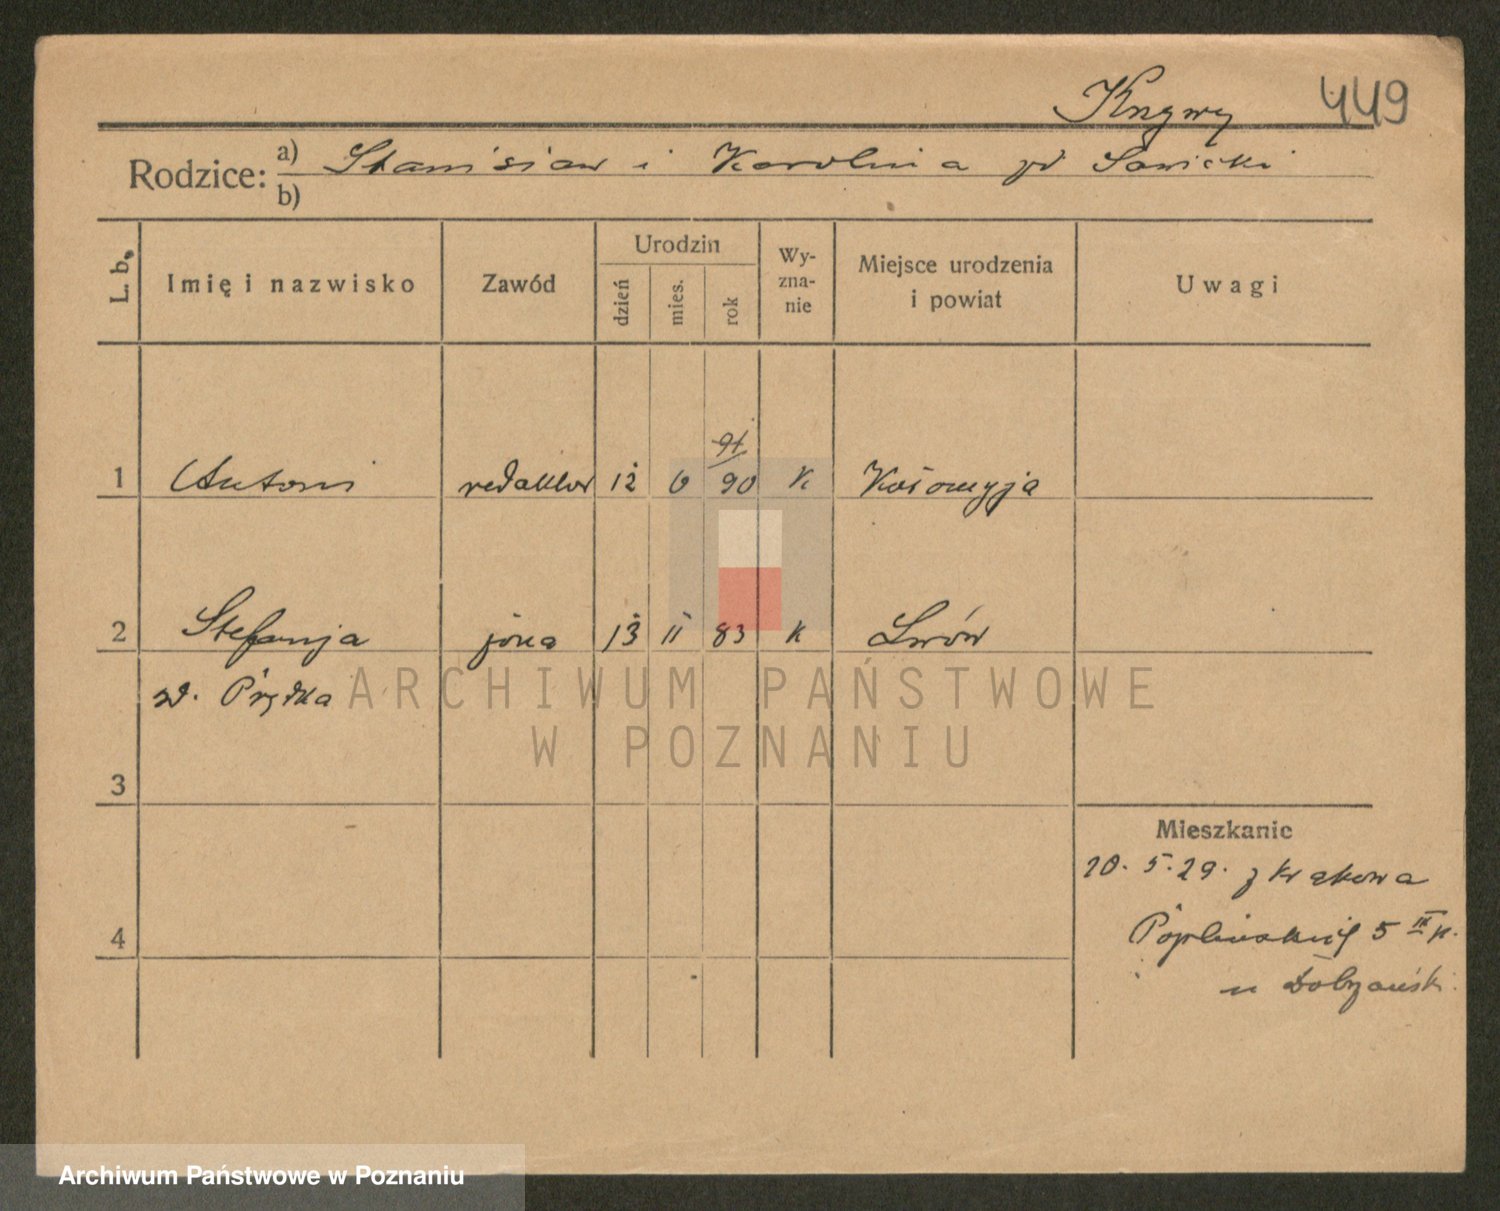 Krzywy 449
Rodzice: a) Stanisław i Karolina zd Sawicki
b)
L. b.
Imię i nazwisko
Zawód
Urodzin
dzień
mies.
rok
Wy-
zna-
nie
Miejsce urodzenia
i powiat
Uwagi
91
1 Antoni redaktor 12 6 90 K Kołomyja
2 Stefanja żona 13 11 83 K Lwów
zd. Prędka
3
4
Mieszkanie
20. 5. 29. z Krakowa
5 III p.
u
ARCHIWUM PAŃSTWOWE
W POZNANIU
Archiwum Państwowe w Poznaniu